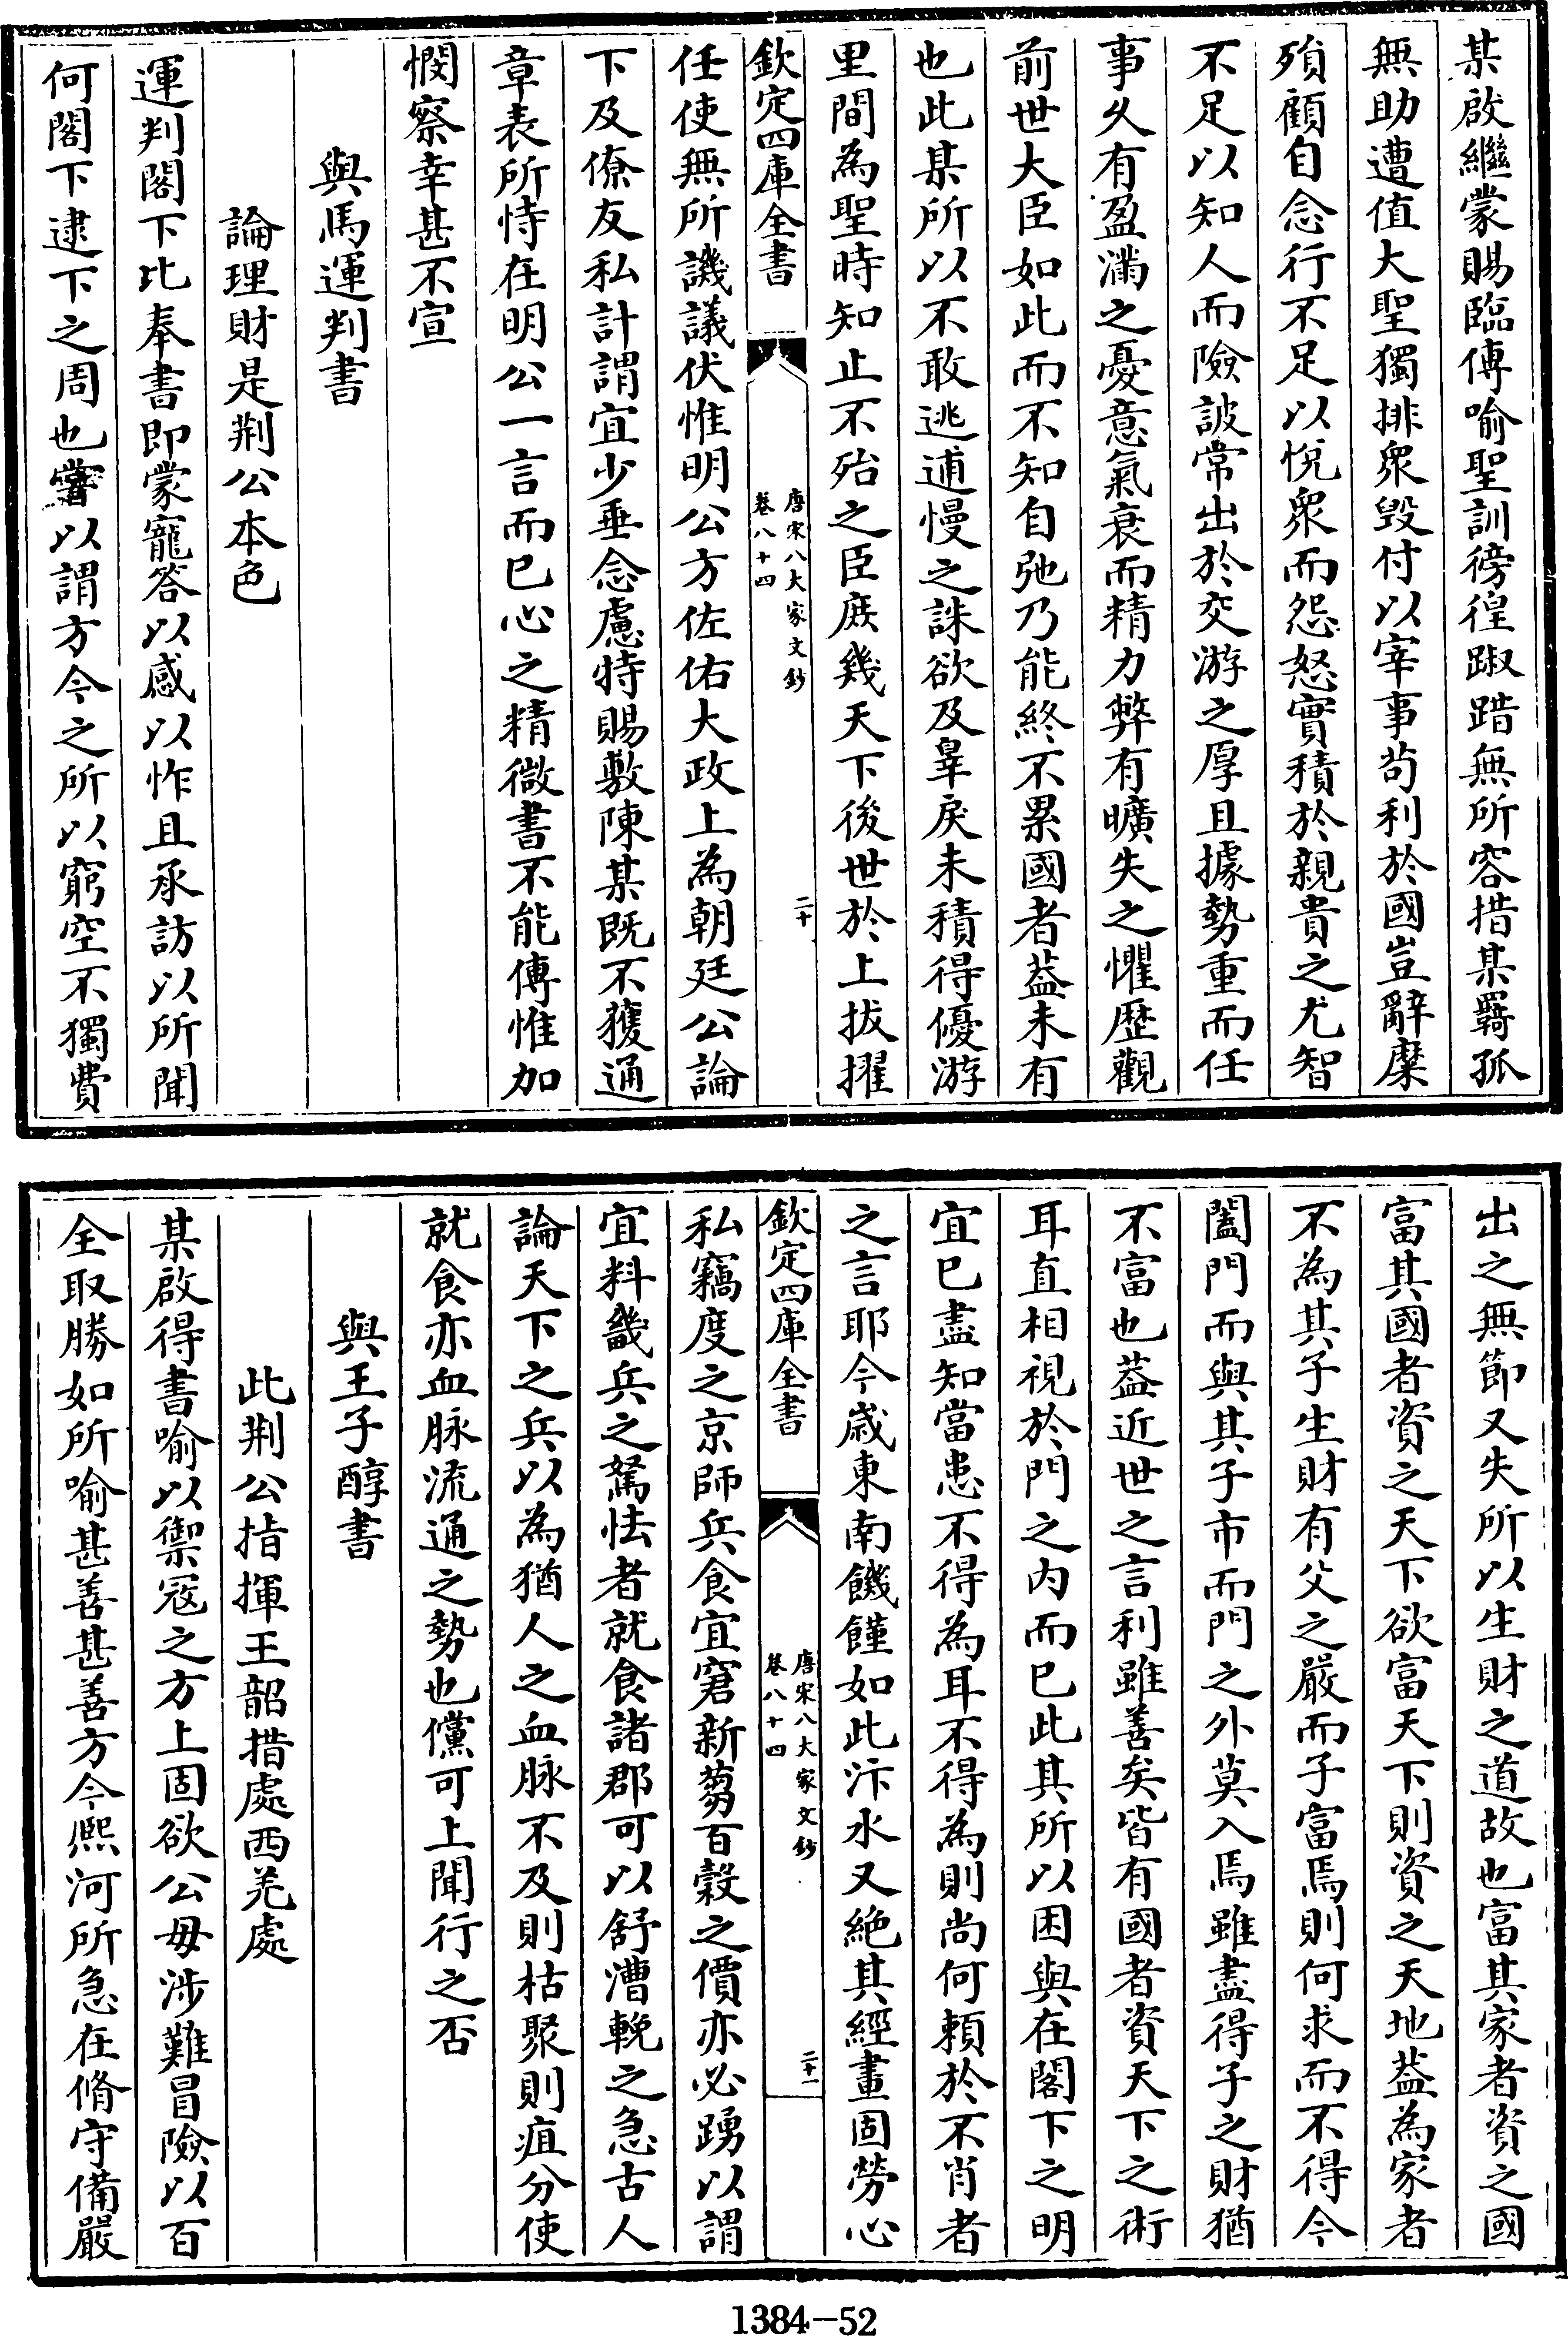 某啟繼蒙賜臨傳喻聖訓徬徨踧踖無所容措某羇孤
無助遭值大聖獨排衆毀付以宰事苟利於國豈辭糜
殞顧自念行不足以悅衆而怨怒實積於親貴之尤智
不足以知人而險詖常出於交游之厚且據勢重而任
事久有盈滿之憂意氣衰而精力弊有曠失之懼歷觀
前世大臣如此而不知自弛乃能終不累國者葢未有
也此某所以不敢逃逋慢之誅欲及辠戾未積得優游
里間為聖時知止不殆之臣庻幾天下後世於上拔擢
欽定四庫全書
唐宋八大家文鈔
卷八十四
二十
任使無所譏議伏惟明公方佐佑大政上為朝廷公論
下及僚友私計謂宜少垂念慮特賜敷陳某既不獲通
章表所恃在明公一言而已心之精微書不能傳惟加
憫察幸甚不宣
與馬運判書
論理財是荆公本色
運判閣下比奉書即蒙寵答以感以怍且承訪以所聞
何閣下逮下之周也嘗以謂方今之所以窮空不獨費
出之無節又失所以生財之道故也富其家者資之國
富其國者資之天下欲富天下則資之天地葢為家者
不為其子生財有父之嚴而子富焉則何求而不得今
闔門而與其子市而門之外莫入焉雖盡得子之財猶
不富也葢近世之言利雖善矣皆有國者資天下之術
耳直相視於門之内而已此其所以困與在閣下之明
宜已盡知當患不得為耳不得為則尚何賴於不肖者
之言耶今歲東南饑饉如此汴水又絶其經畫固勞心
欽定四庫全書
唐宋八大家文鈔
卷八十四
二十一
私竊度之京師兵食宜窘新芻百穀之價亦必踴以謂
宜料畿兵之駑怯者就食諸郡可以舒漕輓之急古人
論天下之兵以為猶人之血脉不及則枯聚則疽分使
就食亦血脉流通之勢也儻可上聞行之否
與王子醇書
此荆公指揮王韶措處西羌處
某啟得書喻以禦寇之方上固欲公毋涉難冒險以百
全取勝如所喻甚善甚善方今熈河所急在脩守備嚴
1384-52